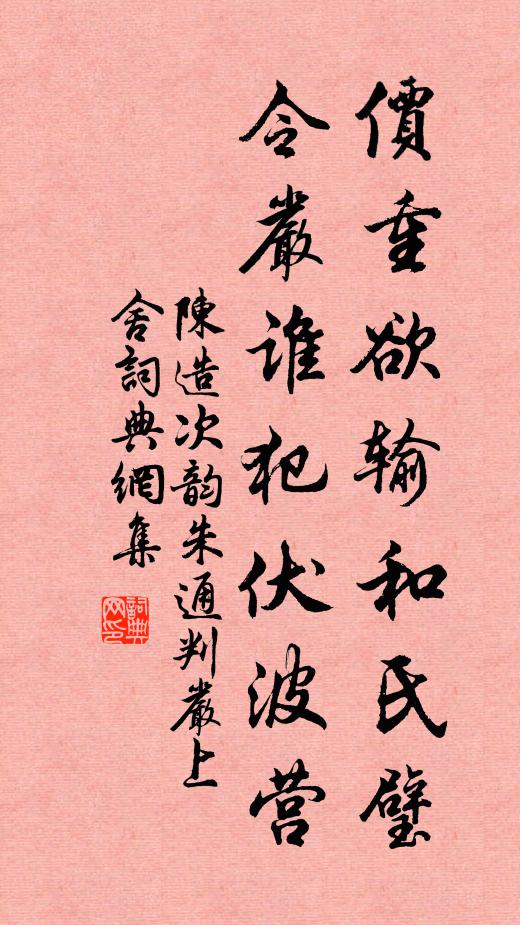 價重欲輸和氏璧
令嚴誰犯伏波营
陳造次韵朱通判嚴上
舍詞典網集
詞典網印